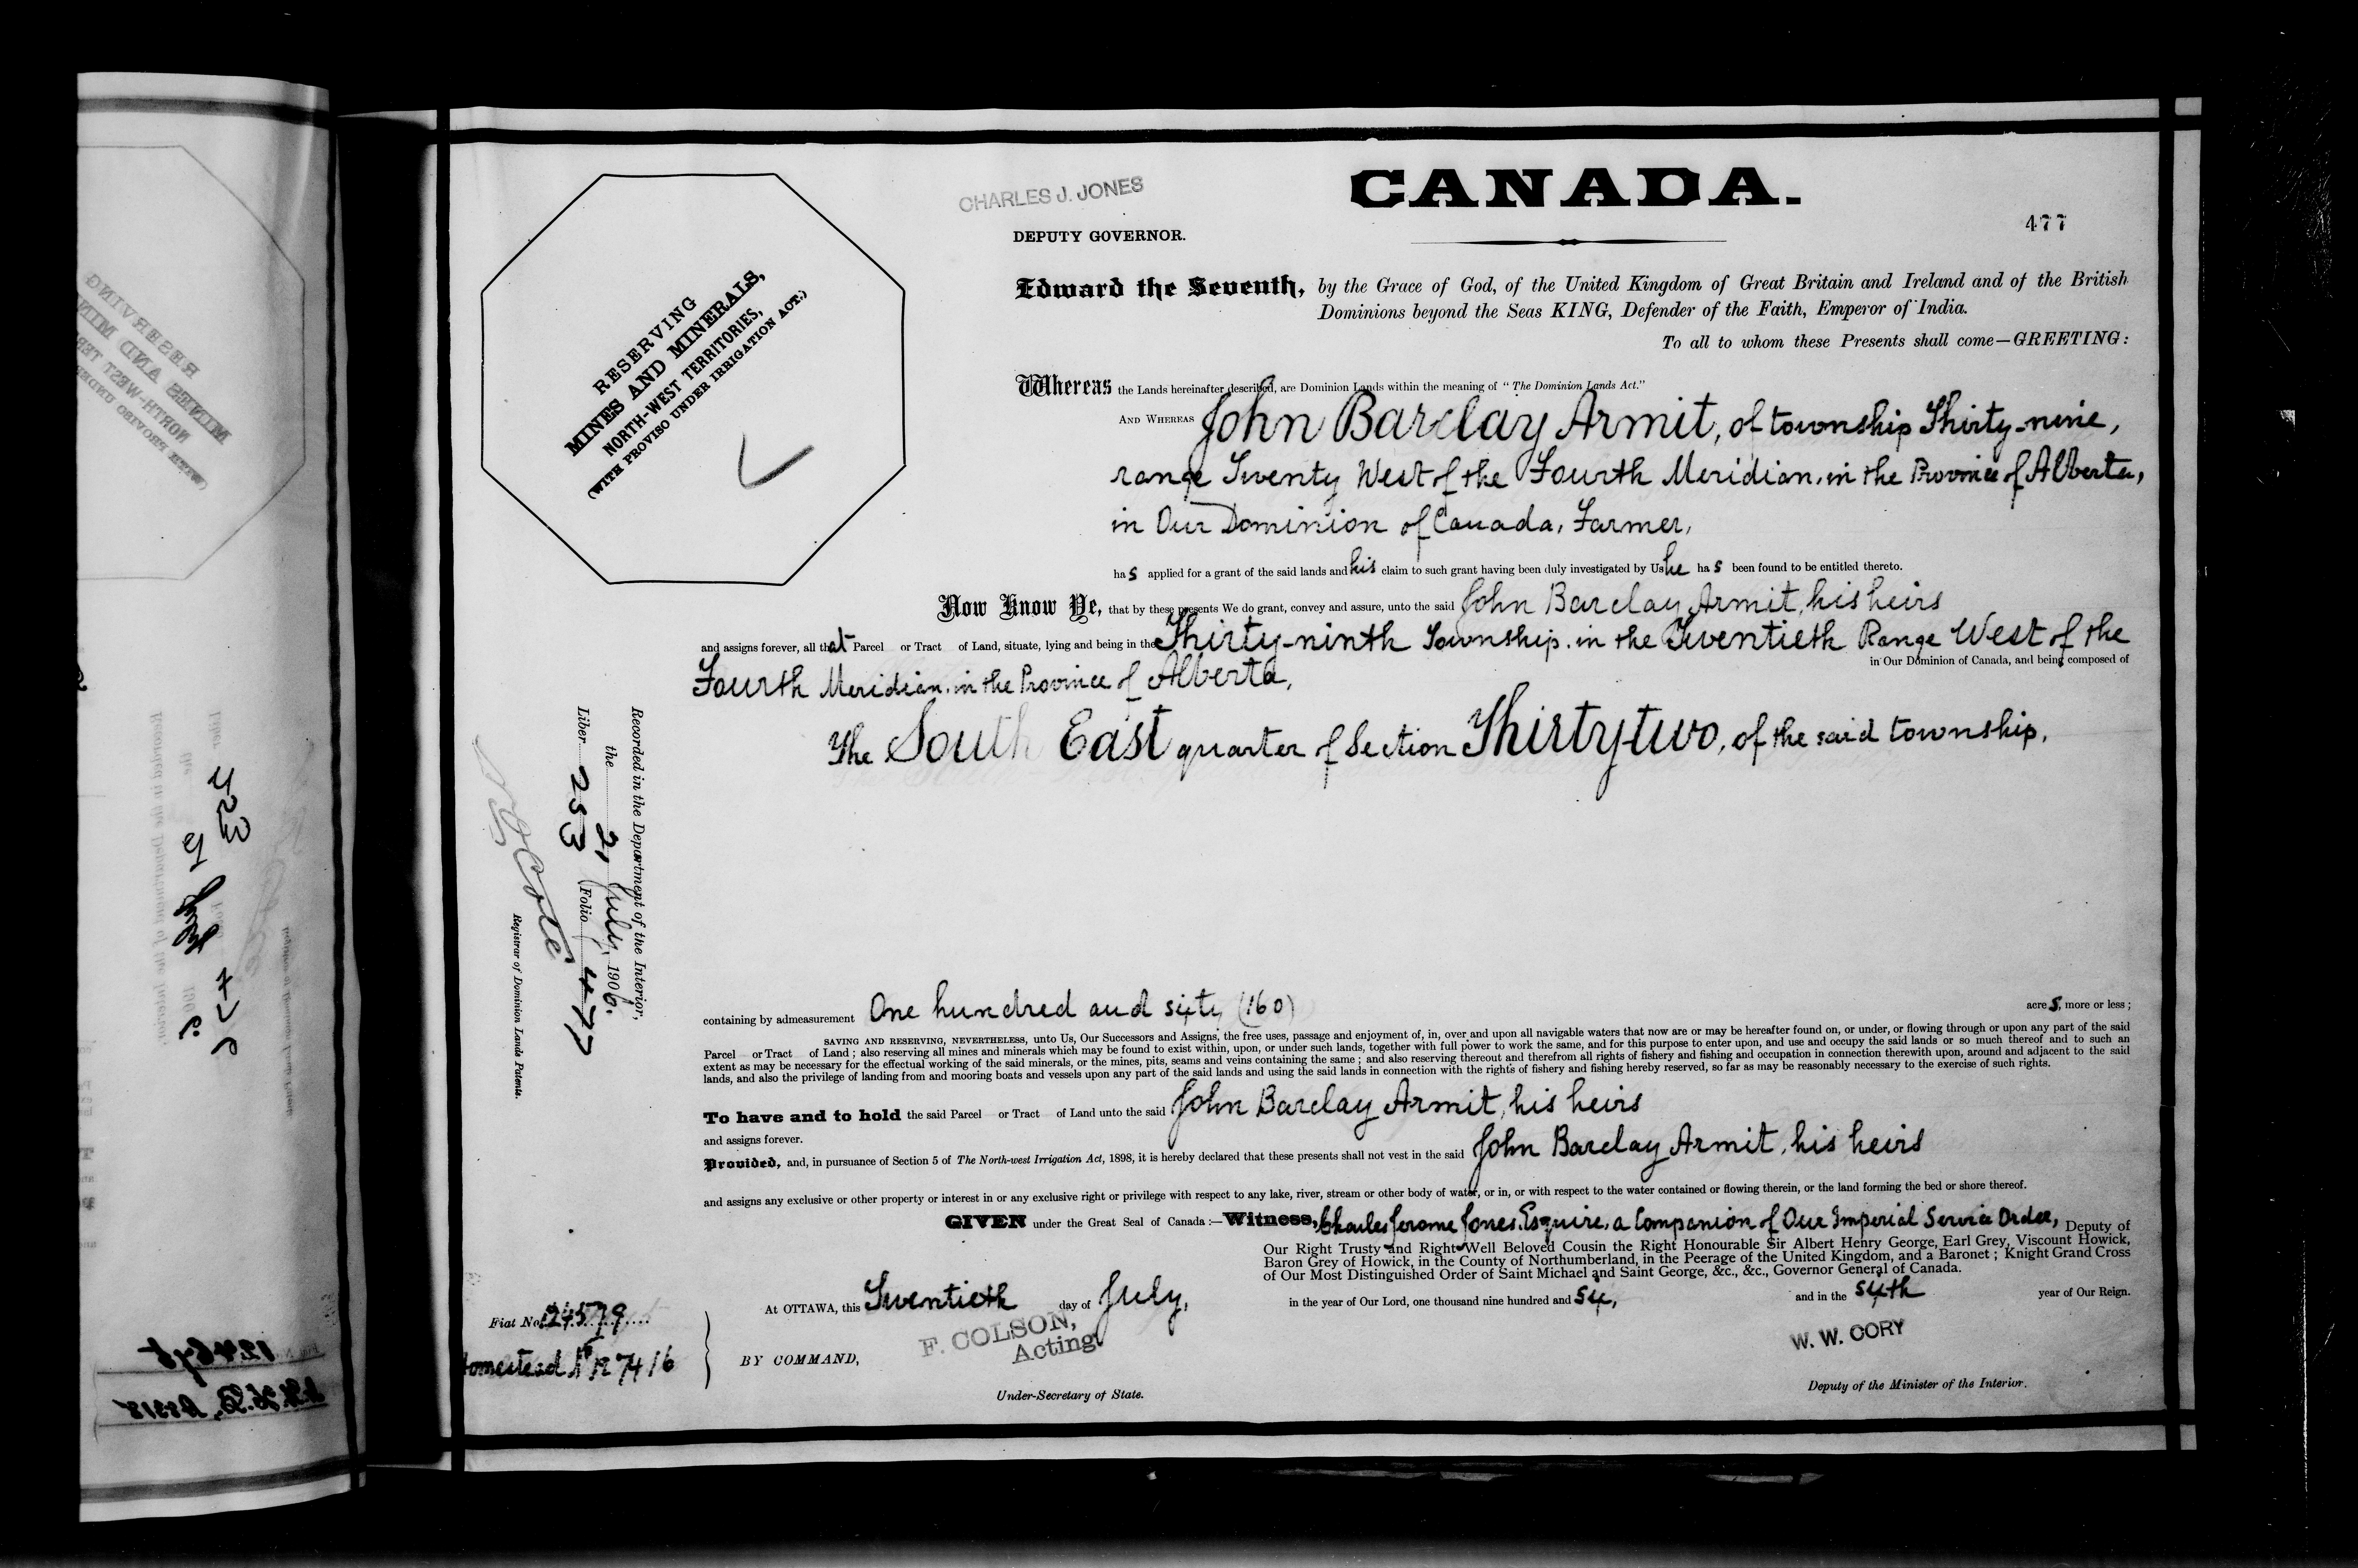 CHARLES J. JONES
CANADA.
477
DEPUTY GOVERNOR.
RESERVING
MINES AND MINERALS,
NORTH-WEST TERRITORIES,
(WITH PROVISO UNDER IRRIGATION ACT.)
Edward the Seventh, by the Grace of God, of the United Kingdom of Great Britain and Ireland and of the British
Dominions beyond the Seas KING, Defender of the Faith, Emperor of India.
To all to whom these Presents shall come—GREETING:
Whereas the Lands hereinafter described, are Dominion Lands within the meaning of "The Dominion Lands Act."
AND WHEREAS John Barclay Armit, of township Thirty-nine,
range Twenty West of the Fourth Meridian, in the Province of Alberta,
in Our Dominion of Canada, Farmer,
has applied for a grant of the said lands and his claim to such grant having been duly investigated by Us he has been found to be entitled thereto.
Now Know Ye, that by these presents We do grant, convey and assure, unto the said John Barclay Armit, his heirs
and assigns forever, all that Parcel or Tract of Land, situate, lying and being in the Thirty-ninth Township, in the Twentieth Range West of the
Fourth Meridian, in the Province of Alberta, in Our Dominion of Canada, and being composed of
The South East quarter of Section Thirty-two, of the said township.
Recorded in the Department of the Interior,
the 21 July, 1906.
Liber 253 Folio 477
Cote
Registrar of Dominion Lands Patents.
containing by admeasurement One hundred and sixty (160) acres, more or less;
SAVING AND RESERVING, NEVERTHELESS, unto Us, Our Successors and Assigns, the free uses, passage and enjoyment of, in, over and upon all navigable waters that now are or may be hereafter found on, or under, or flowing through or upon any part of the said
Parcel or Tract of Land; also reserving all mines and minerals which may be found to exist within, upon, or under such lands, together with full power to work the same, and for this purpose to enter upon, and use and occupy the said lands or so much thereof and to such an
extent as may be necessary for the effectual working of the said minerals, or the mines, pits, seams and veins containing the same; and also reserving thereout and therefrom all rights of fishery and fishing and occupation in connection therewith upon, around and adjacent to the said
lands, and also the privilege of landing from and mooring boats and vessels upon any part of the said lands and using the said lands in connection with the rights of fishery and fishing hereby reserved, so far as may be reasonably necessary to the exercise of such rights.
To have and to hold the said Parcel or Tract of Land unto the said John Barclay Armit, his heirs
and assigns forever.
Provided, and, in pursuance of Section 5 of The North-west Irrigation Act, 1898, it is hereby declared that these presents shall not vest in the said John Barclay Armit, his heirs
and assigns any exclusive or other property or interest in or any exclusive right or privilege with respect to any lake, river, stream or other body of water, or in, or with respect to the water contained or flowing therein, or the land forming the bed or shore thereof.
GIVEN under the Great Seal of Canada:—Witness, Charles Jerome Jones, Esquire, a Companion of Our Imperial Service Order, Deputy of
Our Right Trusty and Right Well Beloved Cousin the Right Honourable Sir Albert Henry George, Earl Grey, Viscount Howick,
Baron Grey of Howick, in the County of Northumberland, in the Peerage of the United Kingdom, and a Baronet; Knight Grand Cross
of Our Most Distinguished Order of Saint Michael and Saint George, &c., &c., Governor General of Canada.
At OTTAWA, this Twentieth day of July, in the year of Our Lord, one thousand nine hundred and six, and in the sixth year of Our Reign.
Fiat No. 124579
Homestead No 127416
BY COMMAND,
F. COLSON,
Acting
Under-Secretary of State.
W. W. CORY
Deputy of the Minister of the Interior.